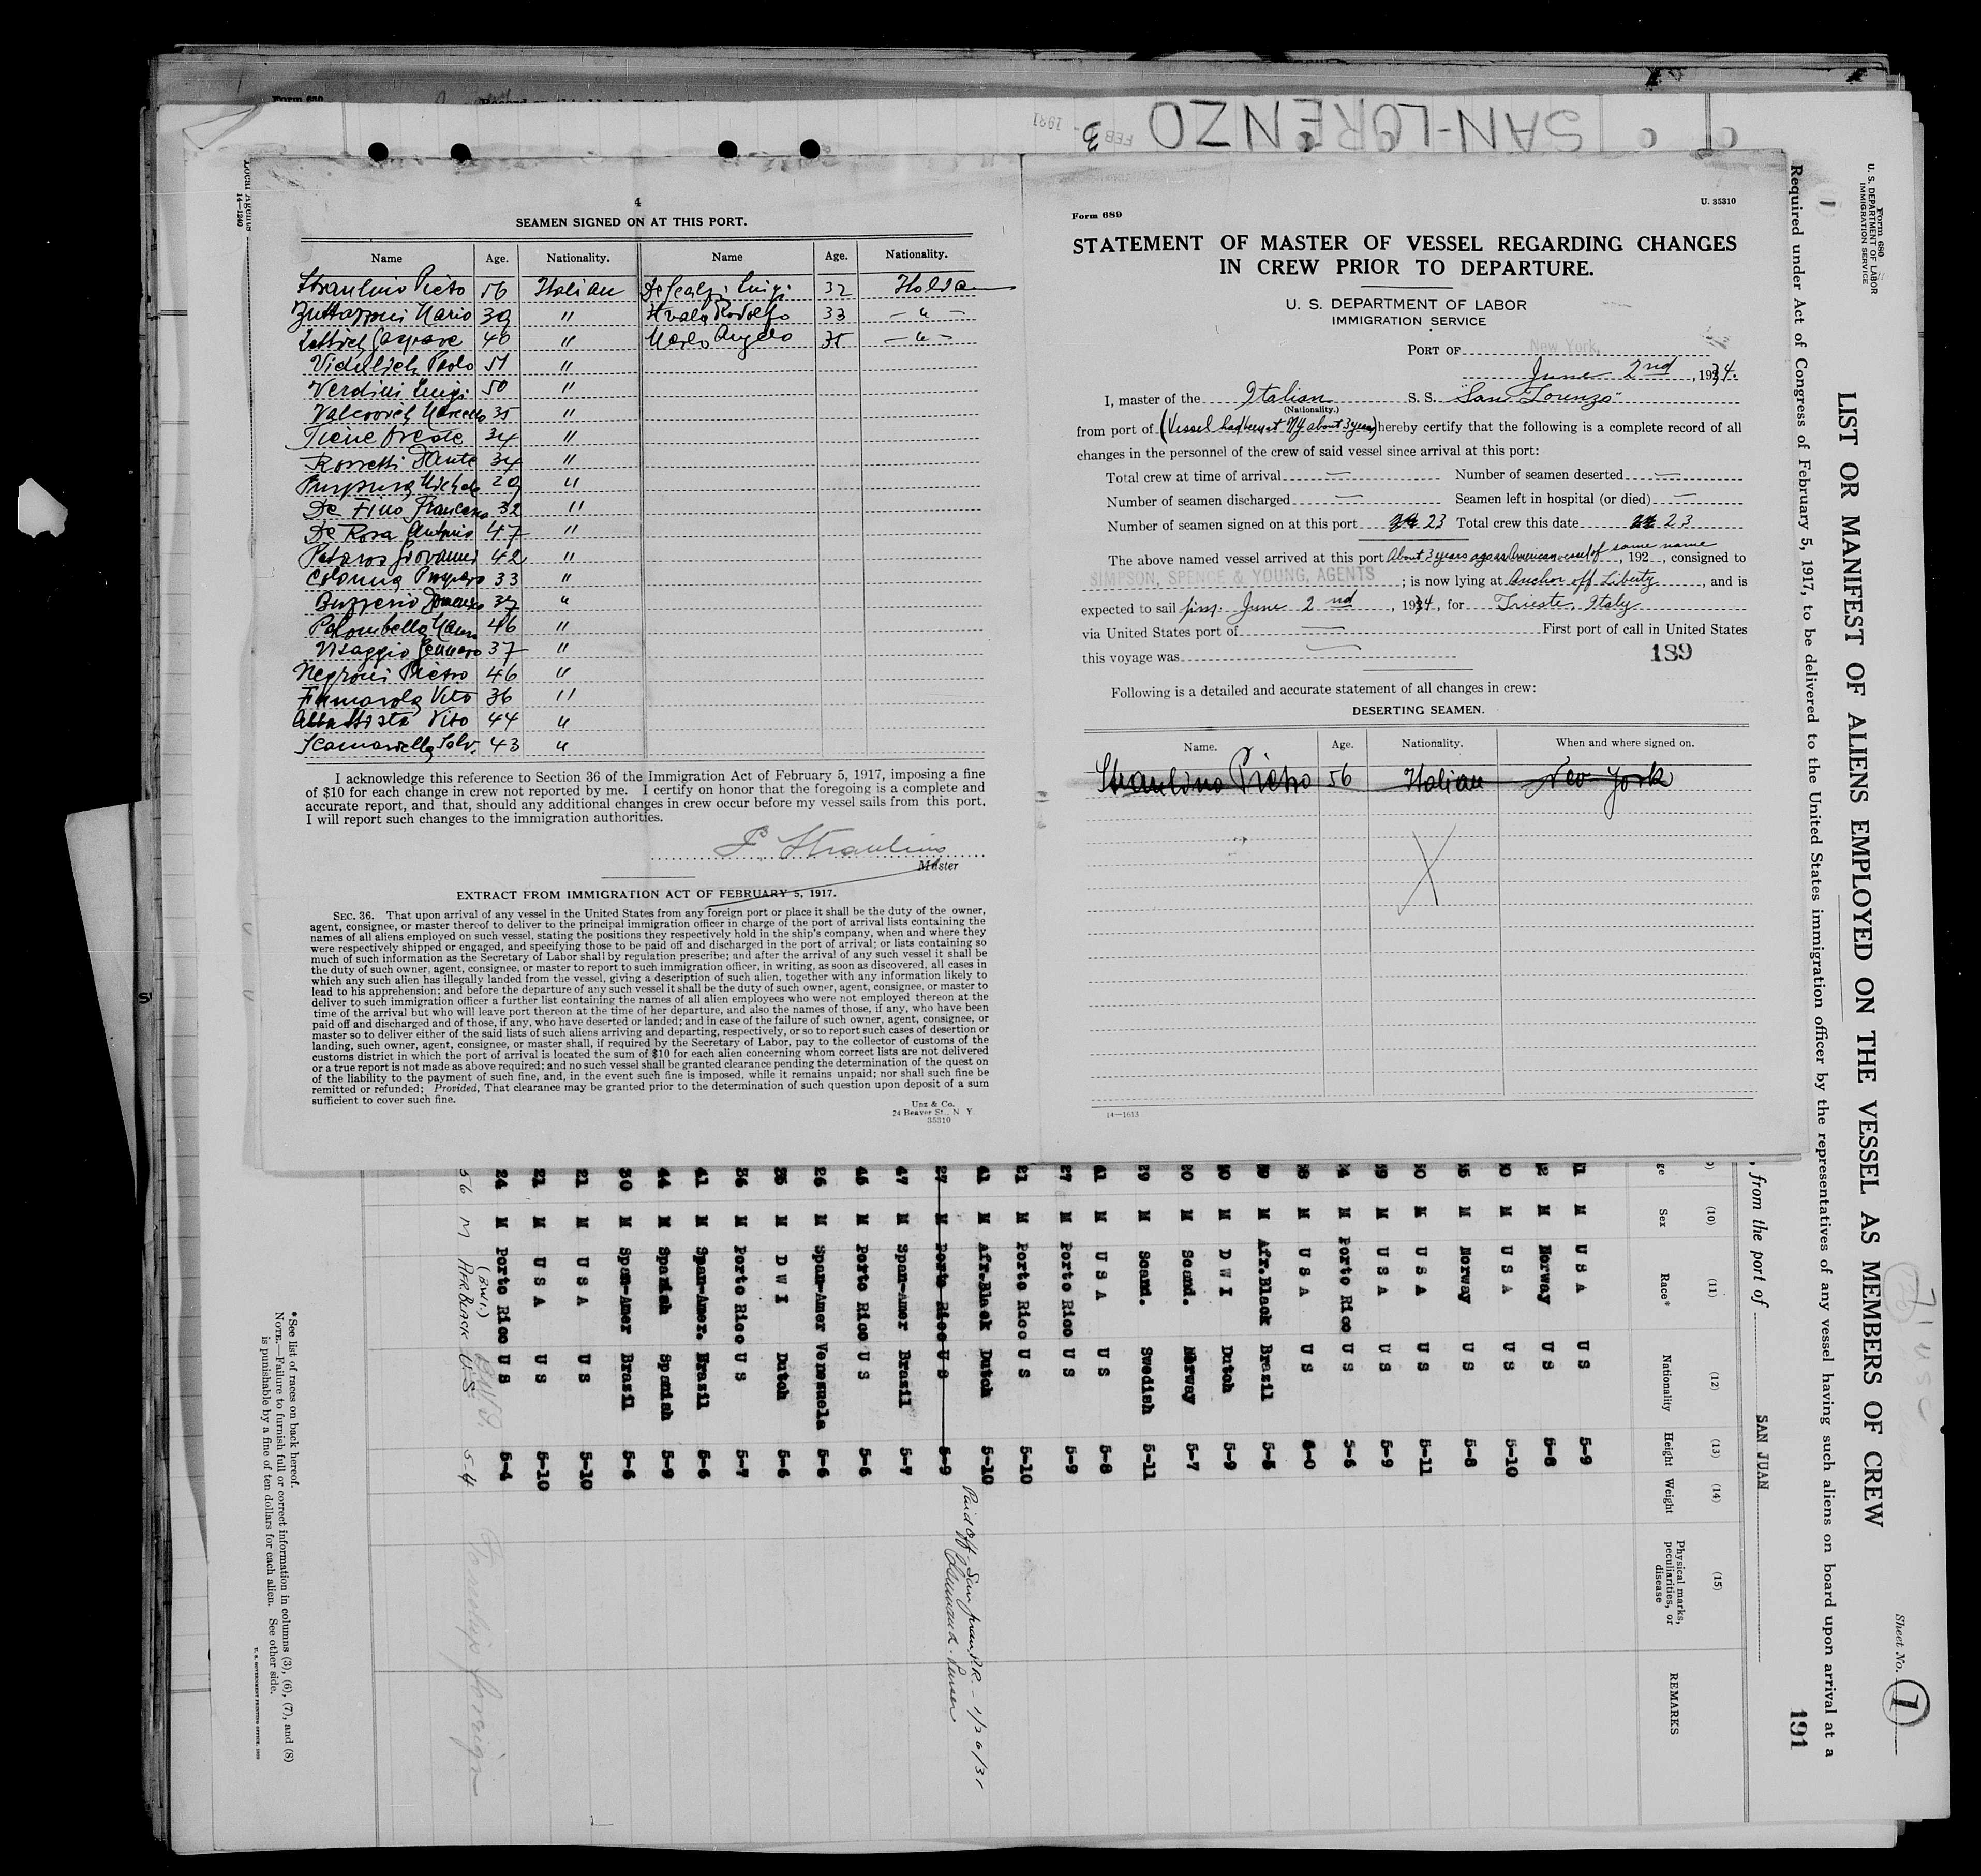 SAN-LORENZO
FEB 3 1931
Form 680
Local Agents
14—1240
4
SEAMEN SIGNED ON AT THIS PORT.
Name Age. Nationality. Name Age. Nationality.
Straulino Pietro 56 Italian De Scalzi Luigi 32 Italian
Zuttapini Mario 39 " Hvala Rodolfo 33 — " —
Gaspare 40 " Merlo Angelo 35 — " —
Vidulich Paolo 51 "
Verdini Luigi 50 "
Valcovich Marcello 35 "
Oreste 34 "
Rossetti Dante 34 "
Michele 29 "
De Fino Francesco 32 "
De Rosa Antonio 47 "
Petaros Giovanni 42 "
Colonna Prospero 33 "
Domenico 37 "
Palombella 46 "
Visaggio Gennaro 37 "
Negroni Pietro 46 "
Fumarola Vito 36 "
Abbattista Vito 44 "
Scamardella Salv. 43 "
I acknowledge this reference to Section 36 of the Immigration Act of February 5, 1917, imposing a fine
of $10 for each change in crew not reported by me. I certify on honor that the foregoing is a complete and
accurate report, and that, should any additional changes in crew occur before my vessel sails from this port,
I will report such changes to the immigration authorities.
P. Straulino
Master
EXTRACT FROM IMMIGRATION ACT OF FEBRUARY 5, 1917.
SEC. 36. That upon arrival of any vessel in the United States from any foreign port or place it shall be the duty of the owner,
agent, consignee, or master thereof to deliver to the principal immigration officer in charge of the port of arrival lists containing the
names of all aliens employed on such vessel, stating the positions they respectively hold in the ship's company, when and where they
were respectively shipped or engaged, and specifying those to be paid off and discharged in the port of arrival; or lists containing so
much of such information as the Secretary of Labor shall by regulation prescribe; and after the arrival of any such vessel it shall be
the duty of such owner, agent, consignee, or master to report to such immigration officer, in writing, as soon as discovered, all cases in
which any such alien has illegally landed from the vessel, giving a description of such alien, together with any information likely to
lead to his apprehension; and before the departure of any such vessel it shall be the duty of such owner, agent, consignee, or master to
deliver to such immigration officer a further list containing the names of all alien employees who were not employed thereon at the
time of the arrival but who will leave port thereon at the time of her departure, and also the names of those, if any, who have been
paid off and discharged and of those, if any, who have deserted or landed; and in case of the failure of such owner, agent, consignee, or
master so to deliver either of the said lists of such aliens arriving and departing, respectively, or so to report such cases of desertion or
landing, such owner, agent, consignee, or master shall, if required by the Secretary of Labor, pay to the collector of customs of the
customs district in which the port of arrival is located the sum of $10 for each alien concerning whom correct lists are not delivered
or a true report is not made as above required; and no such vessel shall be granted clearance pending the determination of the quest on
of the liability to the payment of such fine, and, in the event such fine is imposed, while it remains unpaid; nor shall such fine be
remitted or refunded; Provided, That clearance may be granted prior to the determination of such question upon deposit of a sum
sufficient to cover such fine.
Unz & Co.
24 Beaver St., N Y.
35310
Form 689
U. 35310
STATEMENT OF MASTER OF VESSEL REGARDING CHANGES
IN CREW PRIOR TO DEPARTURE.
U. S. DEPARTMENT OF LABOR
IMMIGRATION SERVICE
PORT OF New York,
June 2nd, 1934.
I, master of the Italian S. S. "San Lorenzo"
(Nationality.)
from port of (Vessel had been at NY about 3 years) hereby certify that the following is a complete record of all
changes in the personnel of the crew of said vessel since arrival at this port:
Total crew at time of arrival — Number of seamen deserted —
Number of seamen discharged — Seamen left in hospital (or died) —
Number of seamen signed on at this port 23 Total crew this date 23
The above named vessel arrived at this port About 3 years ago as American vessel of same name, 192 , consigned to
SIMPSON, SPENCE & YOUNG, AGENTS ; is now lying at Anchor off Liberty , and is
expected to sail June 2nd, 1934, for Trieste, Italy
via United States port of — First port of call in United States
this voyage was
189
Following is a detailed and accurate statement of all changes in crew:
DESERTING SEAMEN.
Name. Age. Nationality. When and where signed on.
Straulino Pietro 56 Italian New York
14—1613
Form 680
U. S. DEPARTMENT OF LABOR
IMMIGRATION SERVICE
LIST OR MANIFEST OF ALIENS EMPLOYED ON THE VESSEL AS MEMBERS OF CREW
Required under Act of Congress of February 5, 1917, to be delivered to the United States immigration officer by the representatives of any vessel having such aliens on board upon arrival at a
Sheet No. 1
191
, from the port of SAN JUAN
(10) (11) (12) (13) (14) (15)
Sex Race* Nationality Height Weight Physical marks, peculiarities, or disease REMARKS
M U S A U S 5-9
M Norway U S 5-8
M U S A U S 5-10
M Norway U S 5-8
M U S A U S 5-11
M U S A U S 5-9
M Porto Rico U S 5-6
M U S A U S
M Afr.Black Brazil 5-5
M D W I Dutch 5-9
M Scand. Norway 5-7
29 M Scand. Swedish 5-11
41 M U S A U S 5-8
27 M Porto Rico U S 5-9
21 M Porto Rico U S 5-10
41 M Afr.Black Dutch 5-10
27 M Porto Rico U S 5-9 Paid off San Juan P.R. - 1/26/31
47 M Span-Amer Brazil 5-7
45 M Porto Rico U S 5-6
26 M Span-Amer Venezuela 5-6
35 M D W I Dutch 5-6
36 M Porto Rico U S 5-7
41 M Span-Amer. Brazil 5-6
44 M Spanish Spanish 5-9
30 M Span-Amer Brazil 5-6
21 M U S A U S 5-10
21 M U S A U S 5-10
24 M Porto Rico U S 5-4
56 M Afr Black (BWI.) U S 5-4
*See list of races on back hereof.
NOTE.—Failure to furnish full or correct information in columns (3), (6), (7), and (8)
is punishable by a fine of ten dollars for each alien. See other side.